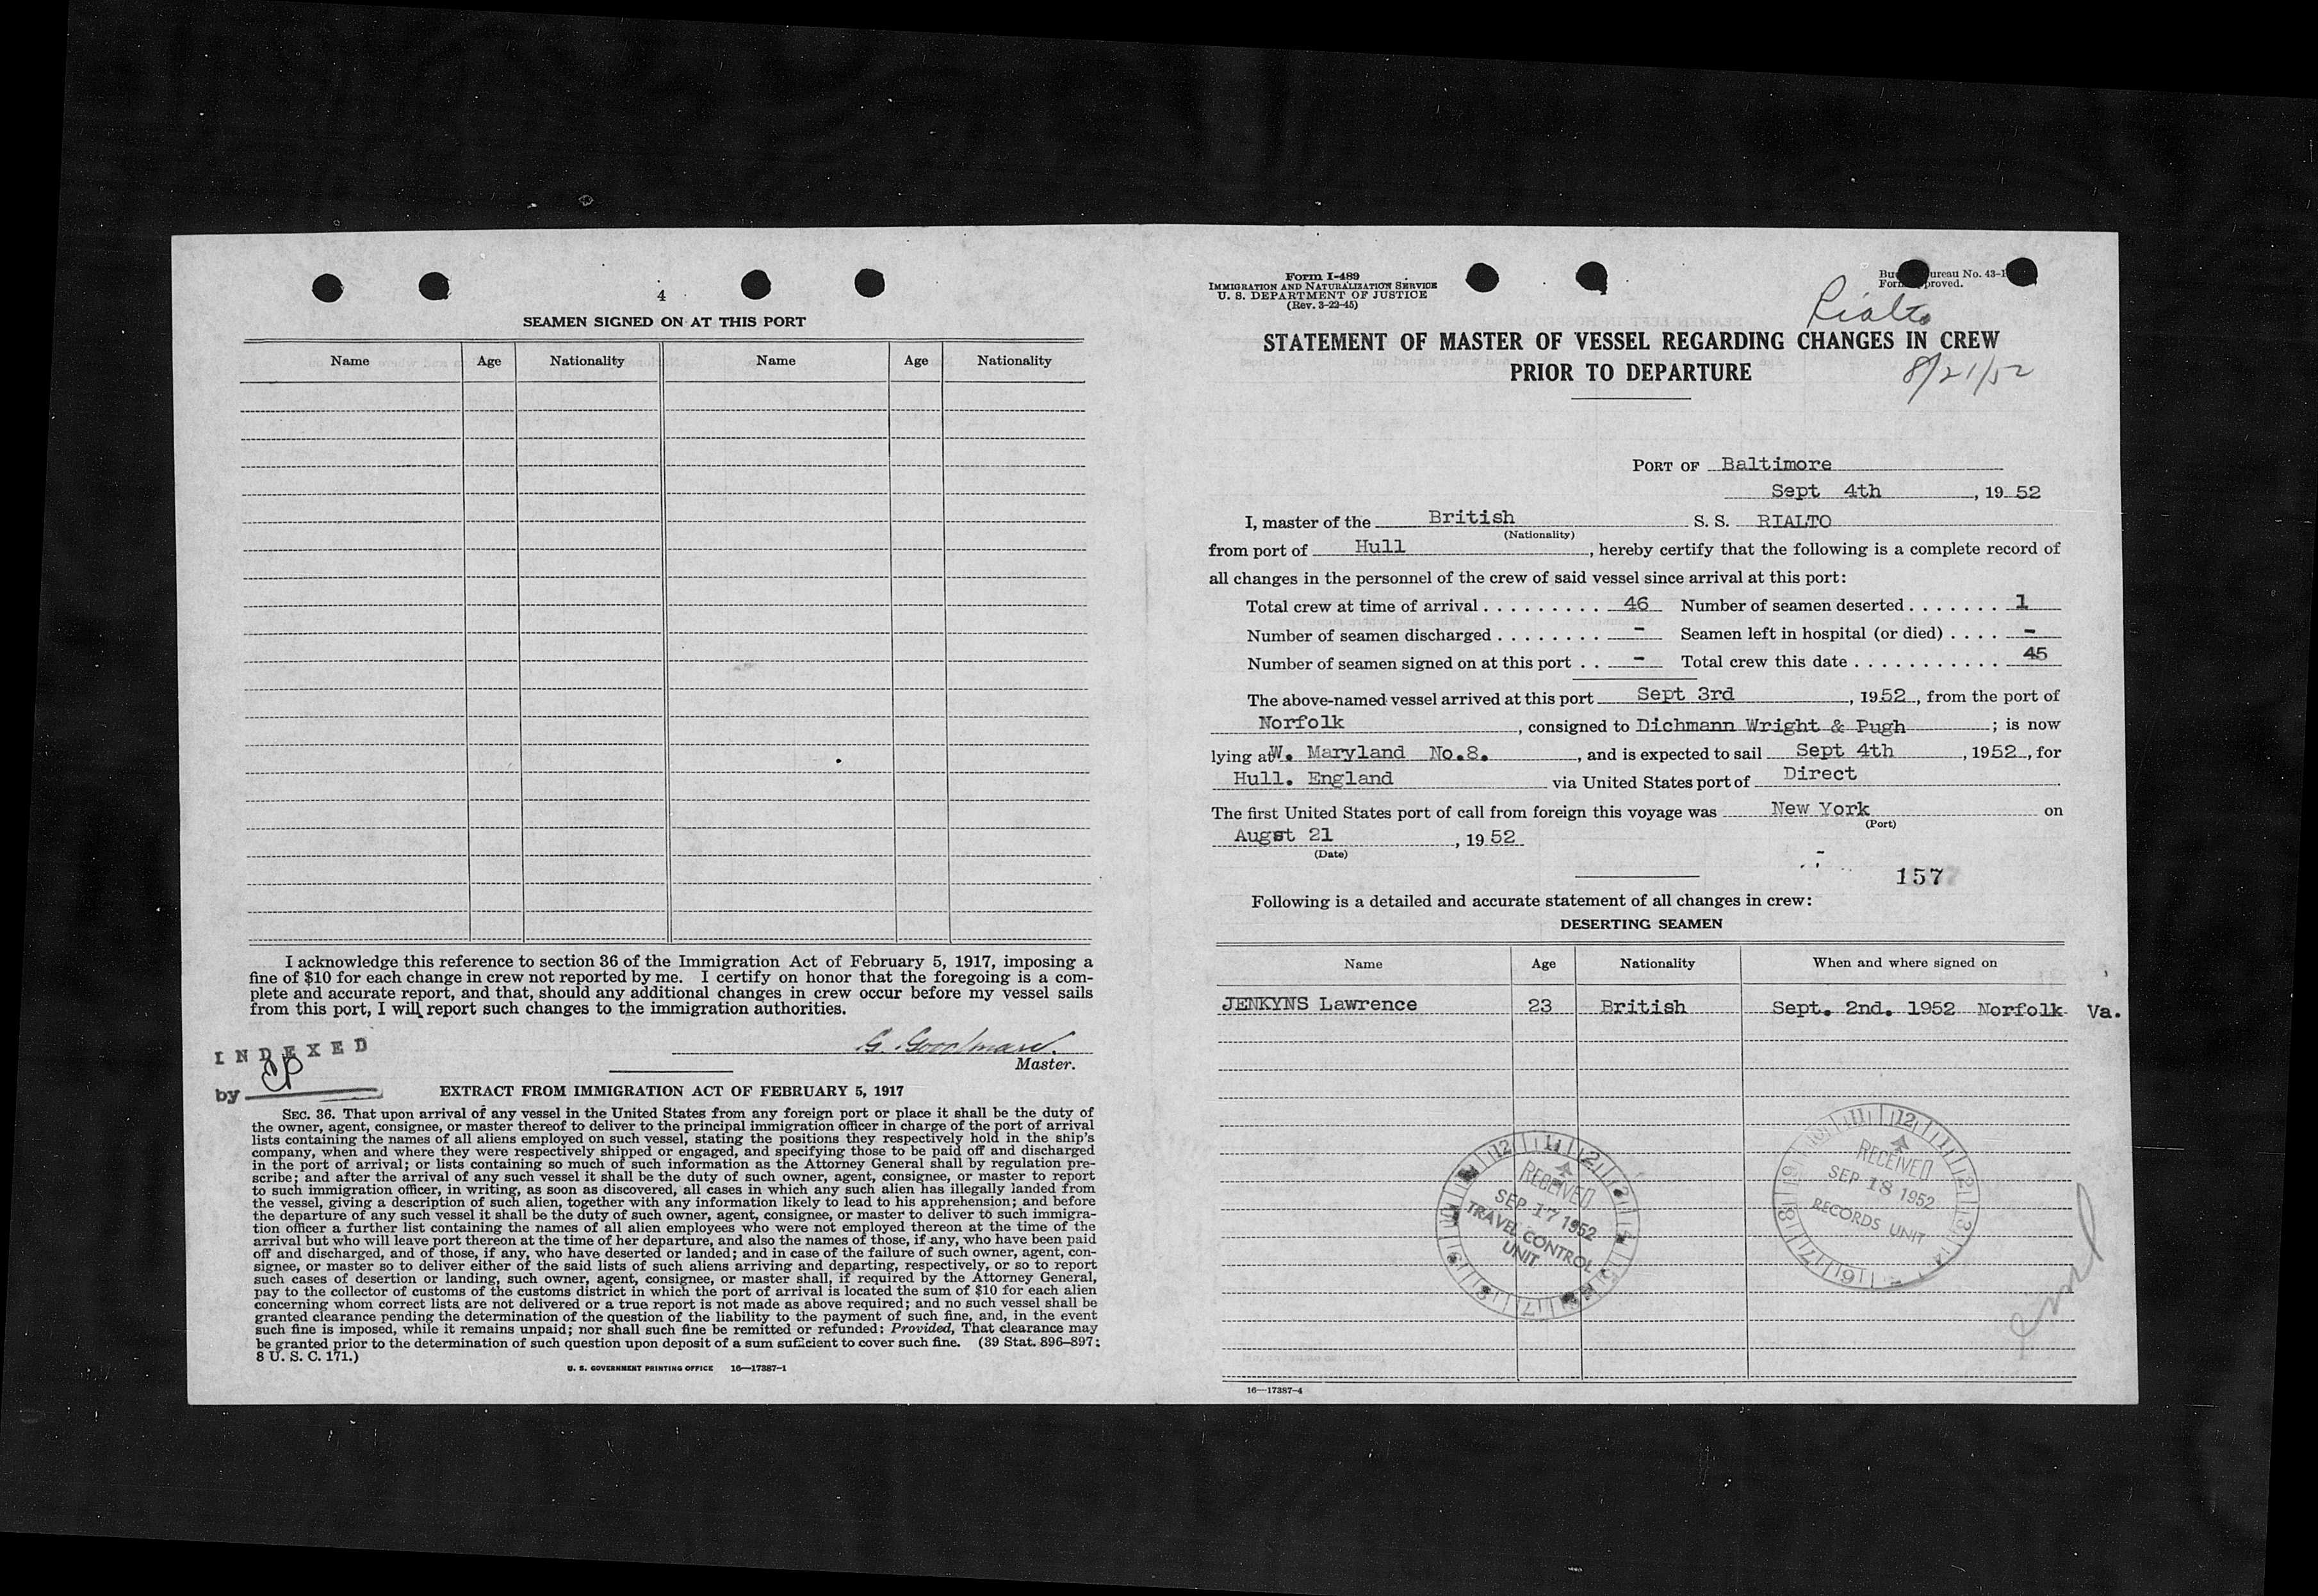 4
SEAMEN SIGNED ON AT THIS PORT
Name Age Nationality Name Age Nationality
I acknowledge this reference to section 36 of the Immigration Act of February 5, 1917, imposing a
fine of $10 for each change in crew not reported by me. I certify on honor that the foregoing is a com-
plete and accurate report, and that, should any additional changes in crew occur before my vessel sails
from this port, I will report such changes to the immigration authorities.
G. Goodman.
Master.
INDEXED
by
EXTRACT FROM IMMIGRATION ACT OF FEBRUARY 5, 1917
SEC. 36. That upon arrival of any vessel in the United States from any foreign port or place it shall be the duty of
the owner, agent, consignee, or master thereof to deliver to the principal immigration officer in charge of the port of arrival
lists containing the names of all aliens employed on such vessel, stating the positions they respectively hold in the ship's
company, when and where they were respectively shipped or engaged, and specifying those to be paid off and discharged
in the port of arrival; or lists containing so much of such information as the Attorney General shall by regulation pre-
scribe; and after the arrival of any such vessel it shall be the duty of such owner, agent, consignee, or master to report
to such immigration officer, in writing, as soon as discovered, all cases in which any such alien has illegally landed from
the vessel, giving a description of such alien, together with any information likely to lead to his apprehension; and before
the departure of any such vessel it shall be the duty of such owner, agent, consignee, or master to deliver to such immigra-
tion officer a further list containing the names of all alien employees who were not employed thereon at the time of the
arrival but who will leave port thereon at the time of her departure, and also the names of those, if any, who have been paid
off and discharged, and of those, if any, who have deserted or landed; and in case of the failure of such owner, agent, con-
signee, or master so to deliver either of the said lists of such aliens arriving and departing, respectively, or so to report
such cases of desertion or landing, such owner, agent, consignee, or master shall, if required by the Attorney General,
pay to the collector of customs of the customs district in which the port of arrival is located the sum of $10 for each alien
concerning whom correct lists are not delivered or a true report is not made as above required; and no such vessel shall be
granted clearance pending the determination of the question of the liability to the payment of such fine, and, in the event
such fine is imposed, while it remains unpaid; nor shall such fine be remitted or refunded: Provided, That clearance may
be granted prior to the determination of such question upon deposit of a sum sufficient to cover such fine. (39 Stat. 896–897;
8 U. S. C. 171.)
U. S. GOVERNMENT PRINTING OFFICE 16—17387-1
Form I-489
IMMIGRATION AND NATURALIZATION SERVICE
U. S. DEPARTMENT OF JUSTICE
(Rev. 3-22-45)
Bureau No. 43-
Form Approved.
Rialto
STATEMENT OF MASTER OF VESSEL REGARDING CHANGES IN CREW
PRIOR TO DEPARTURE
8/21/52
PORT OF Baltimore
Sept 4th, 19 52
I, master of the British S. S. RIALTO
(Nationality)
from port of Hull, hereby certify that the following is a complete record of
all changes in the personnel of the crew of said vessel since arrival at this port:
Total crew at time of arrival . . . . . . . . . 46 Number of seamen deserted . . . . . . . 1
Number of seamen discharged . . . . . . . . - Seamen left in hospital (or died) . . . . -
Number of seamen signed on at this port . . - Total crew this date . . . . . . . . . . . 45
The above-named vessel arrived at this port Sept 3rd, 1952, from the port of
Norfolk, consigned to Dichmann Wright & Pugh; is now
lying at W. Maryland No.8., and is expected to sail Sept 4th, 1952, for
Hull. England via United States port of Direct
The first United States port of call from foreign this voyage was New York on
(Port)
Augst 21, 19 52
(Date)
157
Following is a detailed and accurate statement of all changes in crew:
DESERTING SEAMEN
Name Age Nationality When and where signed on
JENKYNS Lawrence 23 British Sept. 2nd. 1952 Norfolk Va.
RECEIVED
SEP 17 1952
TRAVEL CONTROL
UNIT
RECEIVED
SEP 18 1952
RECORDS UNIT
16—17387-4